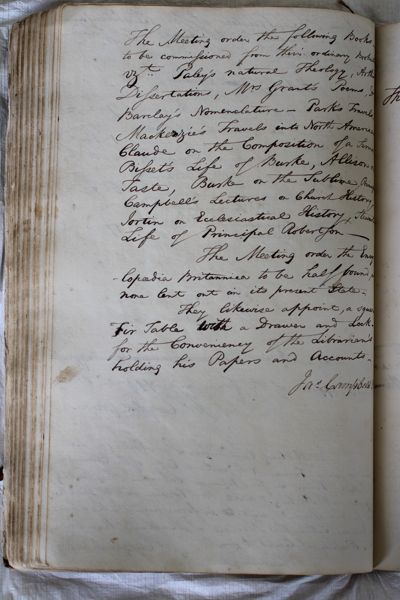 The Meeting order the following Books
to be commissioned from their ordinary
vizt. Paley's natural Theology,
Dissertation, Mrs Grant's Poems,
Barclay's Nomenclature — Park's Travels
Mackenzie's Travels into North America
Claude on the Composition of a
Bisset's Life of Burke, Alison on
Taste, Burke on the Sublime,
Campbell's Lectures on Church History,
Jortin on Ecclesiastical History,
Life of Principal Robertson —
The Meeting order the Ency
-clopædia Britannica to be half bound
none lent out in its present State —
They likewise appoint, a square
Fir Table with a Drawer and Lock
for the Conveniency of the Librarian
holding his Papers and Accounts —
Jas. Campbell